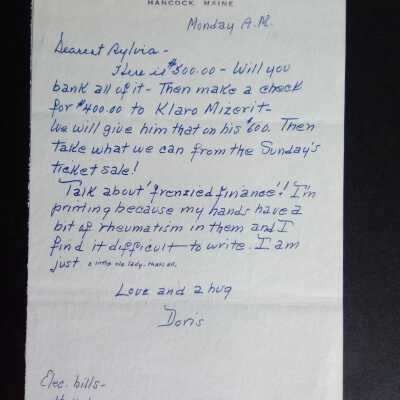 HANCOCK, MAINE
Monday A.M.
Dearest Sylvia -
Here is $500.00 - Will you
bank all of it - Then make a check
for $400.00 to Klaro Mizerit -
We will give him that on his $600. Then
take what we can from the Sunday's
ticket sale!
Talk about 'frenzied finance'! I'm
printing because my hands have a
bit of rheumatism in them and I
find it difficult to write. I am
just a little old lady, that's all.
Love and a hug
Doris
Elec. bills -